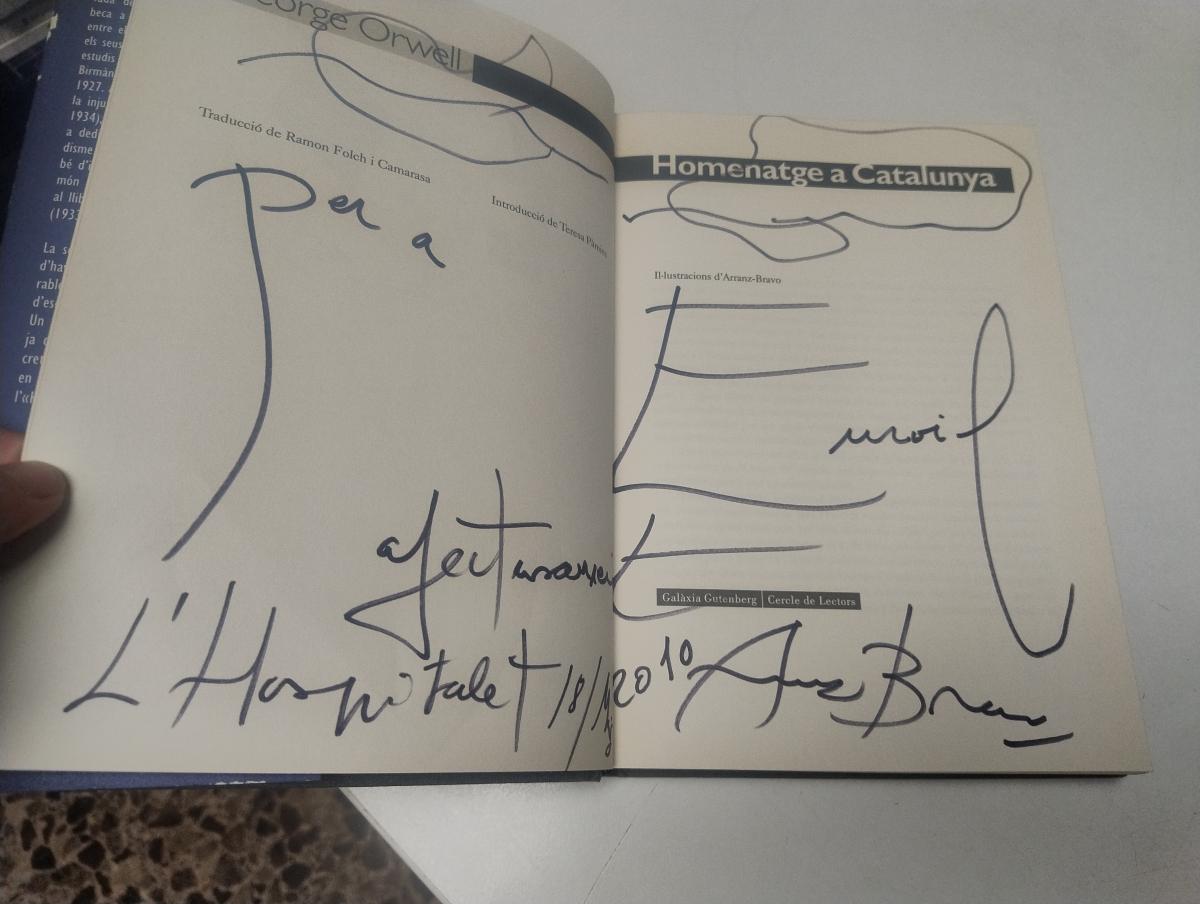 beca a
entre e
els seus
estudis
Birmàn
1927.
la inju
1934),
a ded
disme
bé d'
món
al llib
(193
La s
d'ha
rabl
d'es
Un
ja
cre
en
George Orwell
Traducció de Ramon Folch i Camarasa
Introducció de Teresa Pàmies
Per a
afectuosament
L'Hospitalet 18/
Homenatge a Catalunya
Il·lustracions d'Arranz-Bravo
Galàxia Gutenberg | Cercle de Lectors
2010 Arranz Bravo